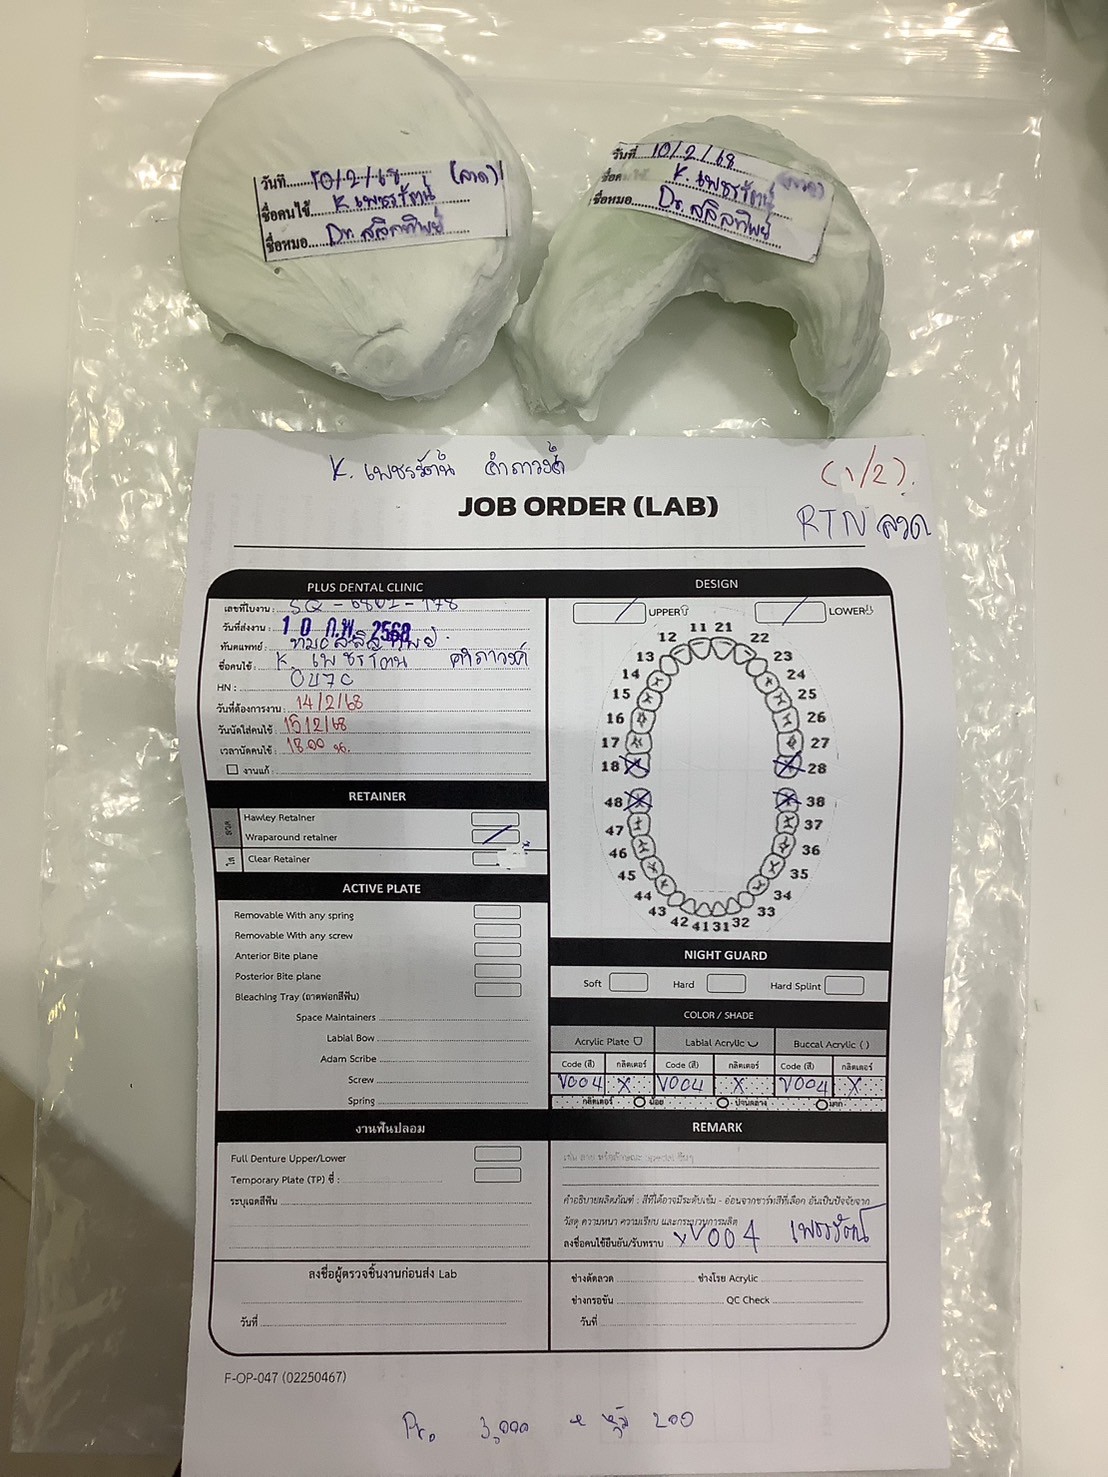 วันที่ 10/2/68 (ลวด)
ชื่อคนไข้ K. เพชรรัตน์
ชื่อหมอ Dr. สลิลทิพย์
วันที่ 10/2/68
K. เพชรรัตน์
ชื่อหมอ Dr. สลิลทิพย์
K. เพชรรัตน์
(1/2).
JOB ORDER (LAB)
RTN ลวด
PLUS DENTAL CLINIC
เลขที่ใบงาน : SQ - 6801 - 178
วันที่ส่งงาน : 10 ก.พ. 2568
ทันตแพทย์ : สลิลทิพย์
ชื่อคนไข้ : K. เพชรรัตน์
HN :
วันที่ต้องการงาน : 14/2/68
วันนัดใส่คนไข้ : 15/2/68
เวลานัดคนไข้ : 18.00 น.
งานแก้ :
RETAINER
ลวด
Hawley Retainer
Wraparound retainer
ใส
Clear Retainer
ACTIVE PLATE
Removable With any spring
Removable With any screw
Anterior Bite plane
Posterior Bite plane
Bleaching Tray (ถาดฟอกสีฟัน)
Space Maintainers
Labial Bow
Adam Scribe
Screw
Spring
งานฟันปลอม
Full Denture Upper/Lower
Temporary Plate (TP) ซี่ :
ระบุเฉดสีฟัน
ลงชื่อผู้ตรวจชิ้นงานก่อนส่ง Lab
วันที่
DESIGN
UPPER
LOWER
11 21
12 22
13 23
14 24
15 25
16 26
17 27
18 28
48 38
47 37
46 36
45 35
44 34
43 33
42 41 31 32
NIGHT GUARD
Soft Hard Hard Splint
COLOR / SHADE
Acrylic Plate Labial Acrylic Buccal Acrylic ( )
Code (สี) กลิตเตอร์ Code (สี) กลิตเตอร์ Code (สี) กลิตเตอร์
V004 X V004 X V004 X
กลิตเตอร์ น้อย ปานกลาง มาก
REMARK
เช่น ลาย หรือลักษณะ special อื่นๆ
คำอธิบายผลิตภัณฑ์ : สีที่ได้อาจมีระดับเข้ม - อ่อนจากชาร์ทสีที่เลือก อันเป็นปัจจัยจาก
วัสดุ ความหนา ความเรียบ และกระบวนการผลิต
ลงชื่อคนไข้ยืนยัน/รับทราบ V004 เพชรรัตน์
ช่างดัดลวด ช่างโรย Acrylic
ช่างกรอขัด QC Check
วันที่
F-OP-047 (02250467)
3,000 200